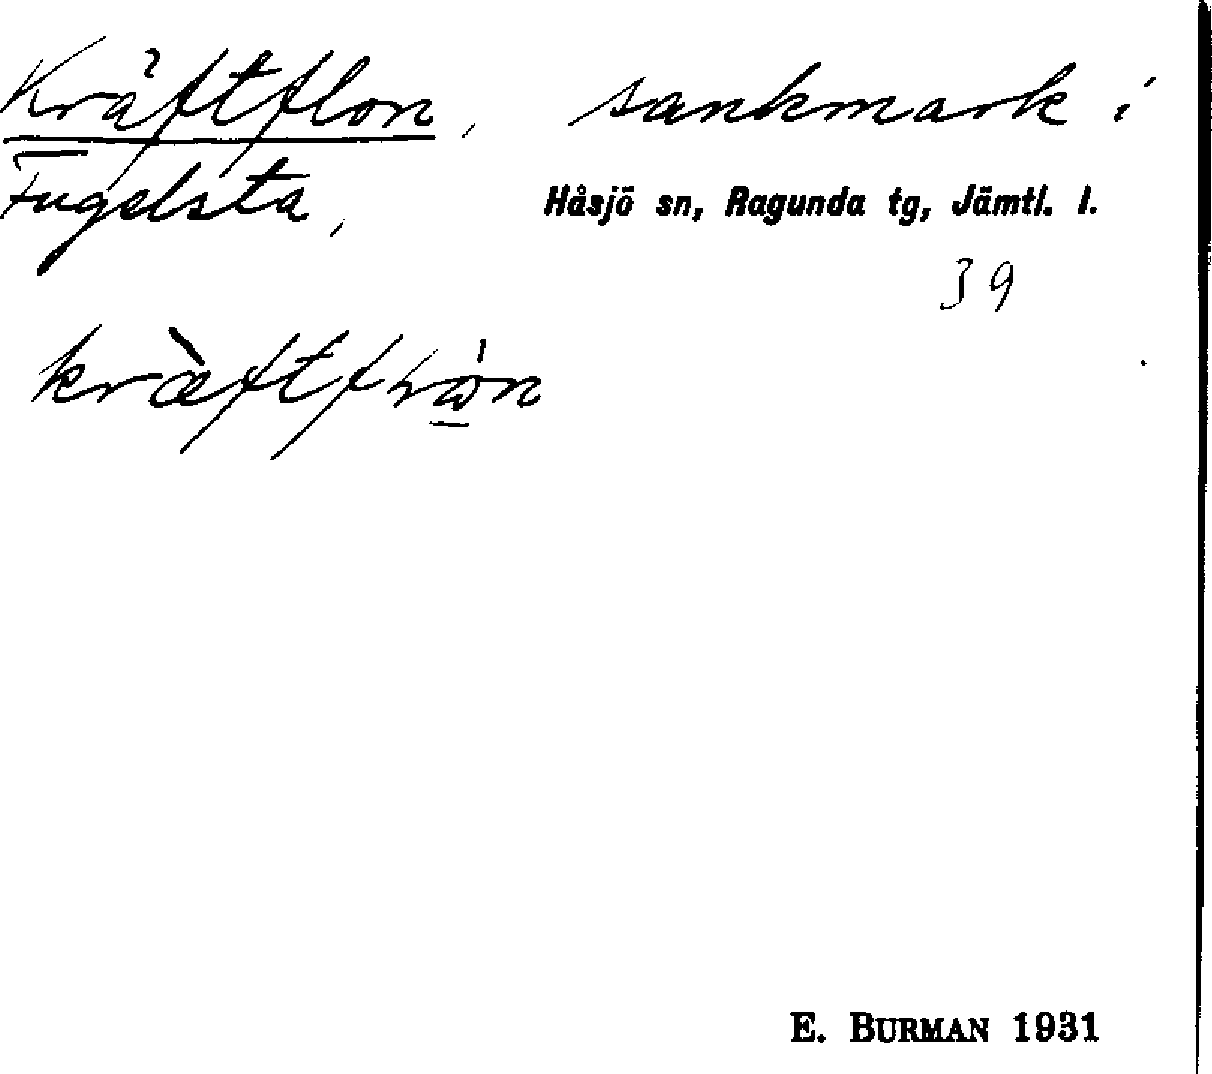 Kräftflon, sankmark i
Fugelsta, Håsjö sn, Ragunda tg, Jämtl. l.
39
E. BURMAN 1931